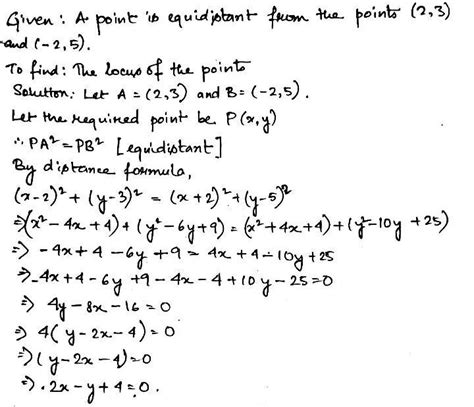 Given : A point is equidistant from the points (2,3)
and (-2,5).
To find : The locus of the points
Solution: Let A = (2,3) and B = (-2,5).
Let the required point be P(x,y)
∴ PA² = PB² [equidistant]
By distance formula,
(x-2)² + (y-3)² = (x+2)² + (y-5)²
⇒(x²-4x+4) + (y²-6y+9) = (x²+4x+4) + (y²-10y+25)
⇒ -4x+4-6y+9 = 4x+4-10y+25
⇒ -4x+4-6y+9-4x-4+10y-25=0
⇒ 4y-8x-16=0
⇒ 4(y-2x-4)=0
⇒(y-2x-4)=0
⇒ 2x-y+4=0.